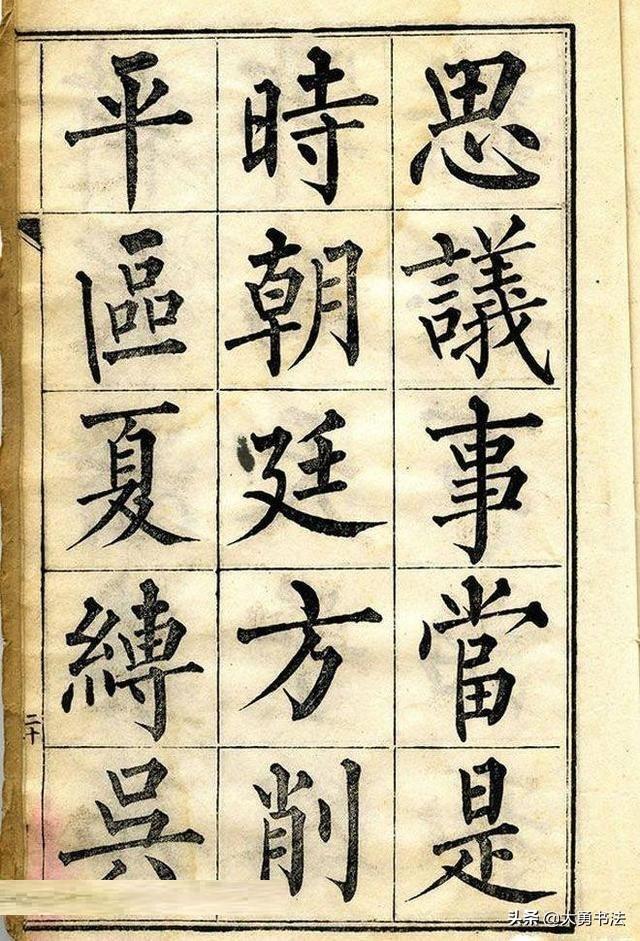 思議事當是
時朝廷方削
平區夏縛吳
二十
头条@大勇书法